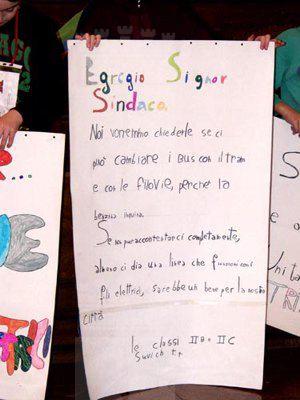 Egregio Signor
Sindaco.
Noi vorremmo chiederle se ci
può cambiare i bus con il tram
e con le filovie, perchè la
benzina inquina.
Se non può accontentarci completamente,
almeno ci dia una linea che funzioni con i
fili elettrici, sarebbe un bene per la nostra
Città
le classi II B e II C